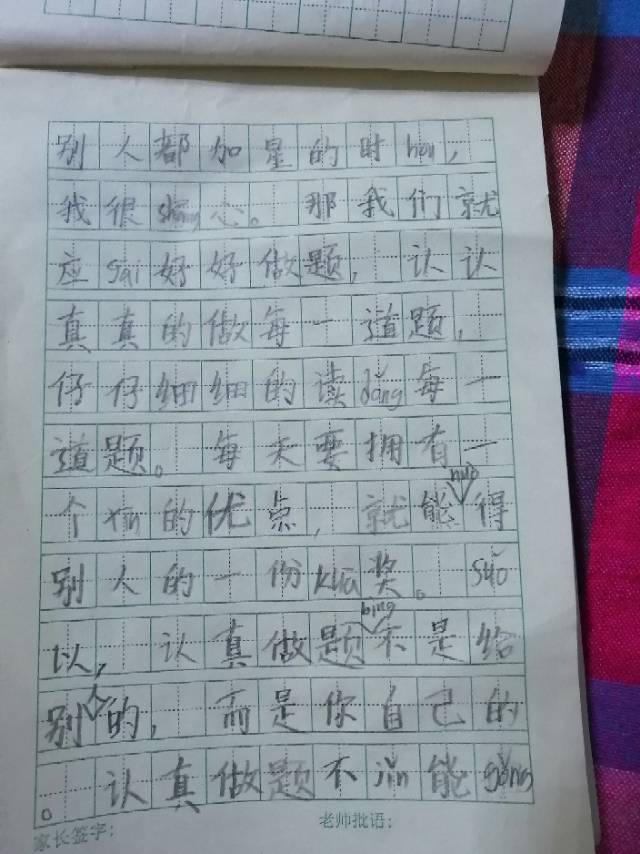 别人都加星的时hou，
我很shāng心。那我们就
应gāi好好做题，认认
真真的做每一道题，
仔仔细细的读dǒng每一
道题。每天要拥有一
个xīn的优点，就能huò得
别人的一份kuā奖。suǒ
以，认真做题bìng不是给
别人的，而是你自己的
。认真做题不jǐn能gòng
家长签字：
老师批语：